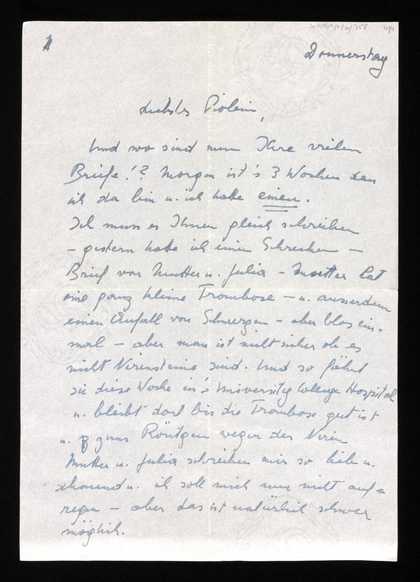 1
Donnerstag
Liebstes Violein,
Und wo sind nun Ihre vielen
Briefe!? Morgen ist's 3 Wochen dass
ich da bin u. ich habe einen.
Ich muss es Ihnen gleich schreiben
– gestern hatte ich einen Schrecken –
Brief von Mutter u. Julia – Mutter hat
eine ganz kleine Trombose – u. ausserdem
einen Anfall von Schmerzen – aber blos ein-
mal – aber man ist nicht sicher ob es
nicht Nierensteine sind. Und so fährt
sie diese Woche in's University College Hospital
u. bleibt dort bis die Trombose gut ist
u. zum Röntgen wegen der Nieren
Mutter u. Julia schreiben mir so lieb u.
schonend u. ich soll mich nur nicht auf-
regen – aber das ist natürlich schwer
möglich.